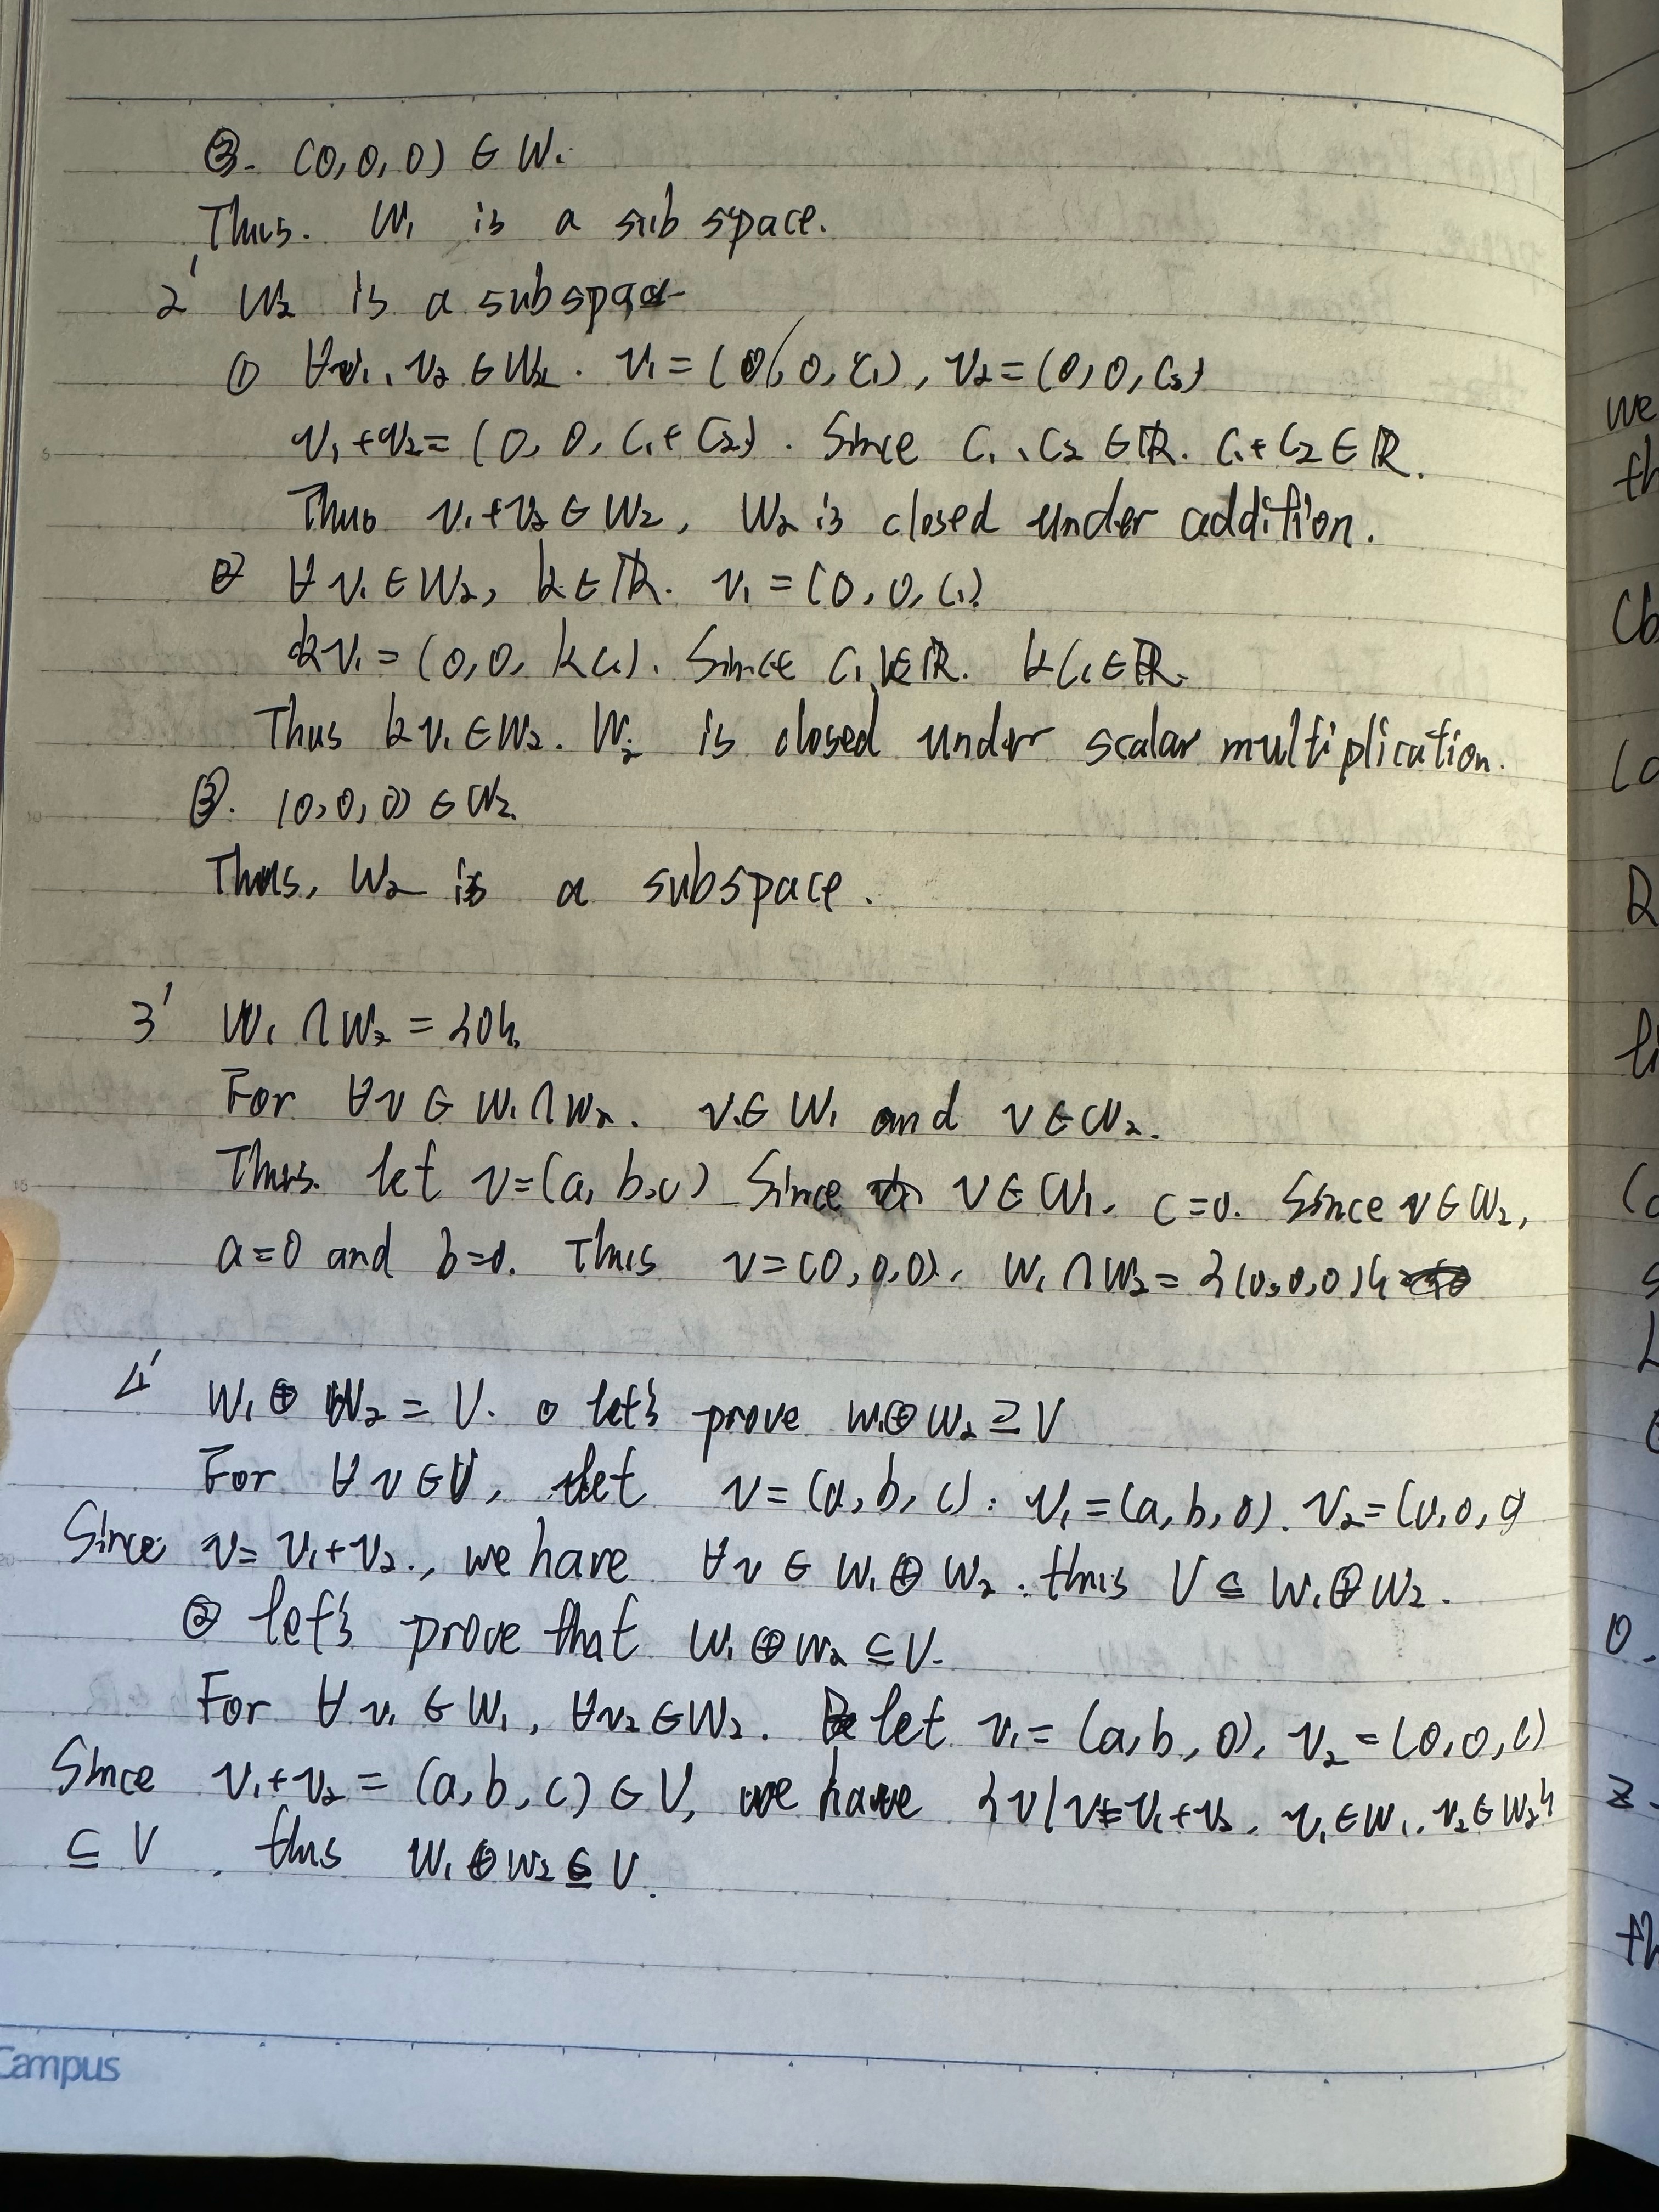 ③. (0, 0, 0) ∈ W₁
Thus. W₁ is a subspace.
2' W₂ is a subspace
① ∀v₁, v₂ ∈ W₂. v₁ = (0, 0, c₁), v₂ = (0, 0, c₂)
v₁+v₂ = (0, 0, c₁+c₂). Since c₁, c₂ ∈ ℝ. c₁+c₂ ∈ ℝ.
Thus v₁+v₂ ∈ W₂, W₂ is closed under addition.
② ∀ v₁ ∈ W₂, k ∈ ℝ. v₁ = (0, 0, c₁)
kv₁ = (0, 0, kc₁). Since c₁, k ∈ ℝ. kc₁ ∈ ℝ.
Thus kv₁ ∈ W₂. W₂ is closed under scalar multiplication.
③. (0, 0, 0) ∈ W₂.
Thus, W₂ is a subspace.
3' W₁ ∩ W₂ = {0}.
For ∀v ∈ W₁ ∩ W₂. v ∈ W₁ and v ∈ W₂.
Thus. let v = (a, b, c) Since v ∈ W₁, c=0. Since v ∈ W₂,
a=0 and b=0. Thus v = (0, 0, 0). W₁ ∩ W₂ = {(0, 0, 0)}
4' W₁ ⊕ W₂ = V. ① let's prove W₁ ⊕ W₂ ⊇ V
For ∀ v ∈ V, let v = (a, b, c). v₁ = (a, b, 0). v₂ = (0, 0, c)
Since v = v₁+v₂., we have ∀v ∈ W₁ ⊕ W₂. thus V ⊆ W₁ ⊕ W₂.
② let's prove that W₁ ⊕ W₂ ⊆ V.
For ∀ v₁ ∈ W₁, ∀v₂ ∈ W₂. let v₁ = (a, b, 0), v₂ = (0, 0, c)
Since v₁+v₂ = (a, b, c) ∈ V, we have {v | v = v₁+v₂, v₁ ∈ W₁, v₂ ∈ W₂}
⊆ V, thus W₁ ⊕ W₂ ⊆ V.
Campus
we
th